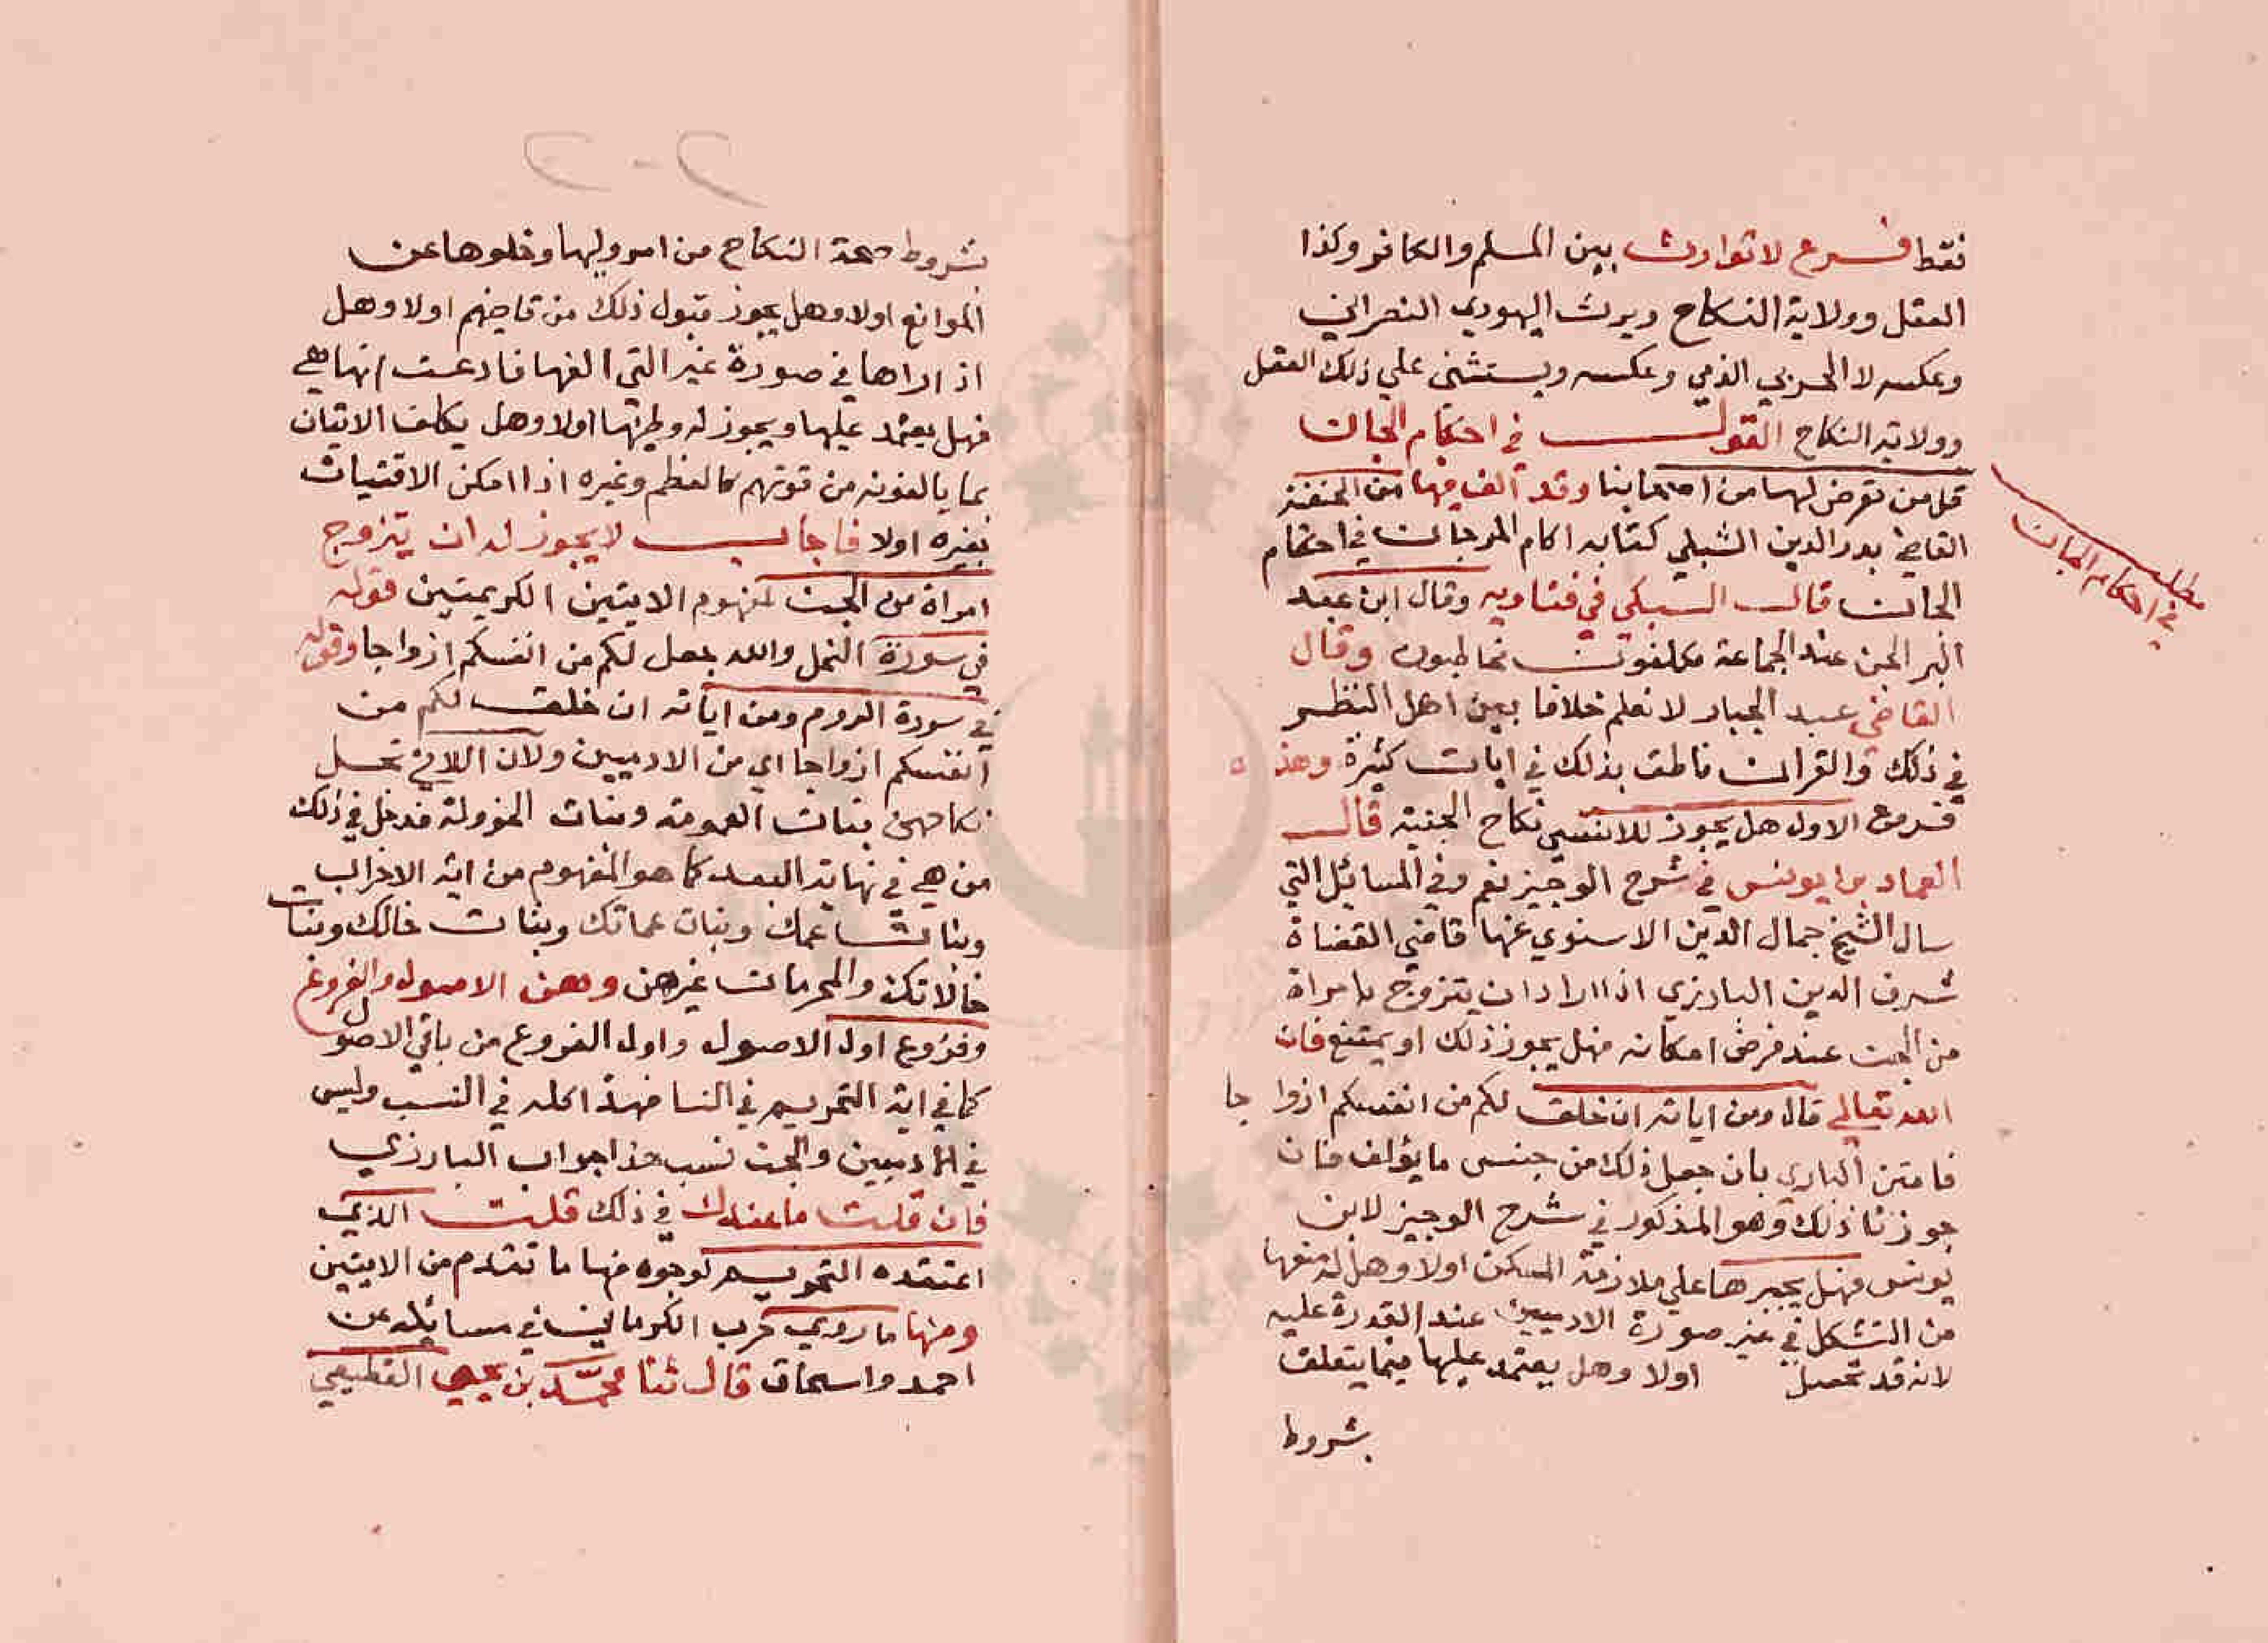 فقط فرع لا توارث بين المسلم والكافر وكذا
العقل وولاية النكاح ويرث اليهودي النصراني
وعكسه لا الحربي الذمي وعكسه ويستثنى علي ذلك العقل
وولاية النكاح القول في احكام الجان
قل من تعرض لها من اصحابنا وقد الف فيها من الحنفية
القاضي بدر الدين الشبلي كتابه اكام المرجان في احكام
الجان قال السبكي في فتاويه وقال ابن عبد
البر الجن عند الجماعة مكلفون مخاطبون وقال
القاضي عبد الجبار لا نعلم خلافا بين اهل النظر
في ذلك والقران ناطق بذلك في ايات كثيرة وهذه
فروع الاول هل يجوز للانسي نكاح الجنية قال
العماد بن يونس في شرح الوجيز نعم وفي المسائل التي
سال الشيخ جمال الدين الاسنوي عنها قاضي القضاة
شرف الدين البارزي اذا اراد ان يتزوج بامراة
من الجن عند فرض امكانه فهل يجوز ذلك او يمتنع فان
الله تعالي قال ومن اياته ان خلق لكم من انفسكم ازواجا
فامتن الباري بان جعل ذلك من جنس ما يؤلف فان
جوزنا ذلك وهو المذكور في شرح الوجيز لابن
يونس فهل يجبرها علي ملازمة المسكن اولا وهل له منعها
من التشكل في غير صورة الادميين عند القدرة عليه
لانه قد تحصل اولا وهل يعتمد عليها فيما يتعلق
بشروط
مطلب
في احكام الجان
بشروط صحة النكاح من امر وليها وخلوها عن
الموانع اولا وهل يجوز قبول ذلك من قاضيهم اولا وهل
اذا راها في صورة غير التي الفها فادعت انها هي
فهل يعتمد عليها ويجوز له وطئها اولا وهل يكلف الاتيان
بما يالفونه من قوتهم كالعظم وغيره اذا امكن الاقتيات
بغيره اولا فاجاب لا يجوز له ان يتزوج
امراة من الجن لمفهوم الايتين الكريمتين قوله
في سورة النحل والله جعل لكم من انفسكم ازواجا وقوله
في سورة الروم ومن اياته ان خلق لكم من
انفسكم ازواجا اي من الادميين ولان اللاتي تحل
نكاحهن بنات العمومة وبنات الخوولة فدخل في ذلك
من هي في نهاية البعد كما هو المفهوم من اية الاحزاب
وبنات عمك وبنات عماتك وبنات خالك وبنات
خالاتك والمحرمات غيرهن وهن الاصول والفروع
وفروع اول الاصول واول الفروع من باقي الاصول
كما في اية التحريم في النسا فهذا كله في النسب وليس
في الادميين والجن نسب هذا جواب البارزي
فان قلت ما عندك في ذلك قلت الذي
اعتقده التحريم لوجوه منها ما تقدم من الايتين
ومنها ما روي حرب الكرماني في مسائله عن
احمد واسحاق قال ثنا محمد بن يحيي القطيعي